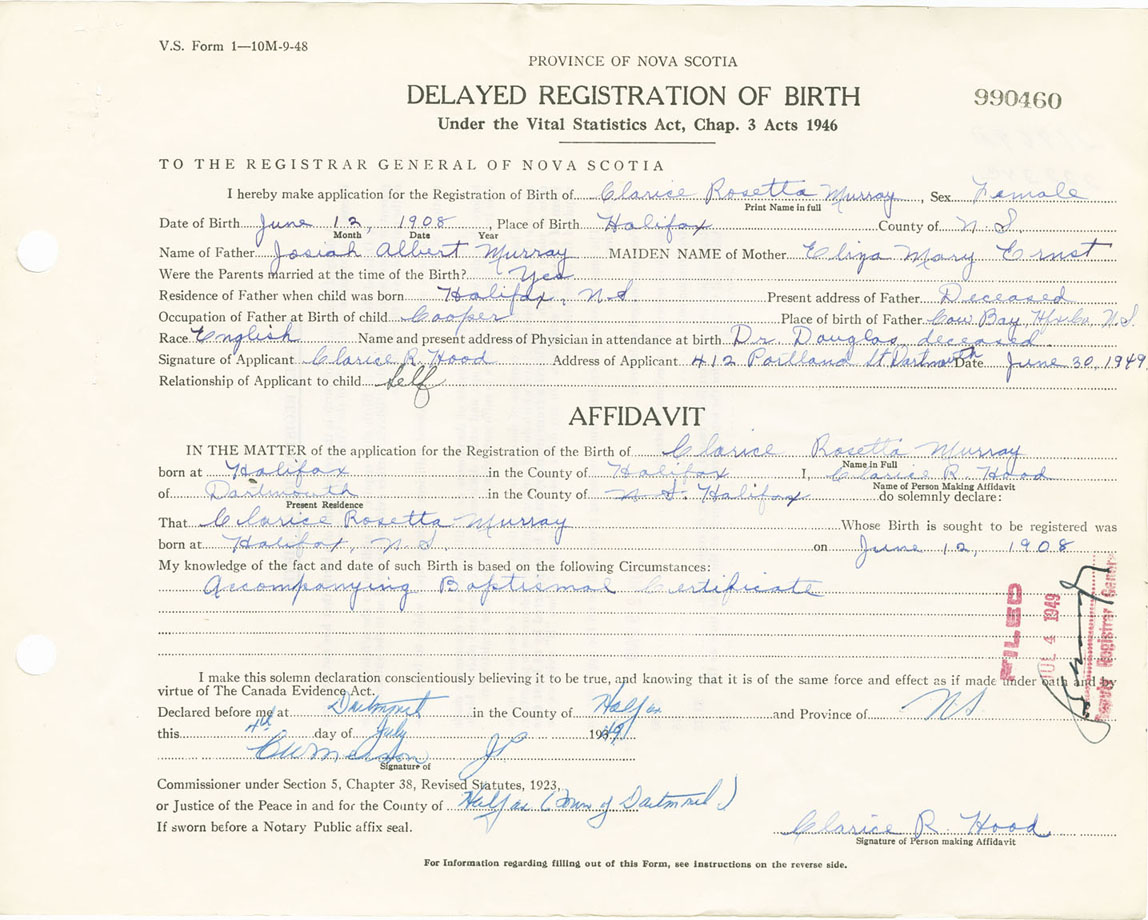 V.S. Form 1—10M-9-48
PROVINCE OF NOVA SCOTIA
DELAYED REGISTRATION OF BIRTH
990460
Under the Vital Statistics Act, Chap. 3 Acts 1946
TO THE REGISTRAR GENERAL OF NOVA SCOTIA
I hereby make application for the Registration of Birth of Clarice Rosetta Murray, Sex Female
Print Name in full
Date of Birth June 12, 1908, Place of Birth Halifax County of N.S.
Month Date Year
Name of Father Josiah Albert Murray MAIDEN NAME of Mother Eliza Mary Ernst
Were the Parents married at the time of the Birth? Yes
Residence of Father when child was born Halifax, NS Present address of Father Deceased
Occupation of Father at Birth of child Cooper Place of birth of Father Cow Bay Hfx Co. N.S.
Race English Name and present address of Physician in attendance at birth Dr Douglas, deceased
Signature of Applicant Clarice R. Hood Address of Applicant 412 Portland St Dartmouth Date June 30, 1949
Relationship of Applicant to child Self
AFFIDAVIT
IN THE MATTER of the application for the Registration of the Birth of Clarice Rosetta Murray
Name in Full
born at Halifax in the County of Halifax I, Clarice R. Hood
Name of Person Making Affidavit
of Dartmouth in the County of N.S. Halifax do solemnly declare:
Present Residence
That Clarice Rosetta Murray Whose Birth is sought to be registered was
born at Halifax, N.S. on June 12, 1908
My knowledge of the fact and date of such Birth is based on the following Circumstances:
Accompanying Baptismal Certificate
FILED
JUL 4 1949
Deputy Registrar General
I make this solemn declaration conscientiously believing it to be true, and knowing that it is of the same force and effect as if made under oath and by
virtue of The Canada Evidence Act.
Declared before me at Dartmouth in the County of Halifax and Province of NS
this 4th day of July 1949
JP
Signature of
Commissioner under Section 5, Chapter 38, Revised Statutes, 1923,
or Justice of the Peace in and for the County of Halifax (Town of Dartmouth)
If sworn before a Notary Public affix seal.
Clarice R. Hood
Signature of Person making Affidavit
For Information regarding filling out of this Form, see instructions on the reverse side.